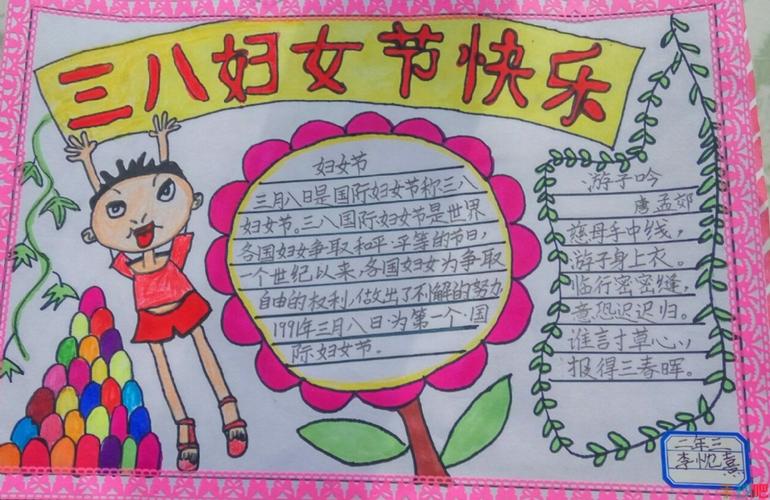 三八妇女节快乐
妇女节
三月八日是国际妇女节称三八
妇女节。三八国际妇女节是世界
各国妇女争取和平·平等的节日,
一个世纪以来,各国妇女为争取
自由的权利,做出了不懈的努力
1991年三月八日·为第一个·国
际·妇女节。
游子吟
唐孟郊
慈母手中线,
游子身上衣。
临行密密缝,
意恐迟迟归。
谁言寸草心,
报得三春晖。
二年三
李 熹